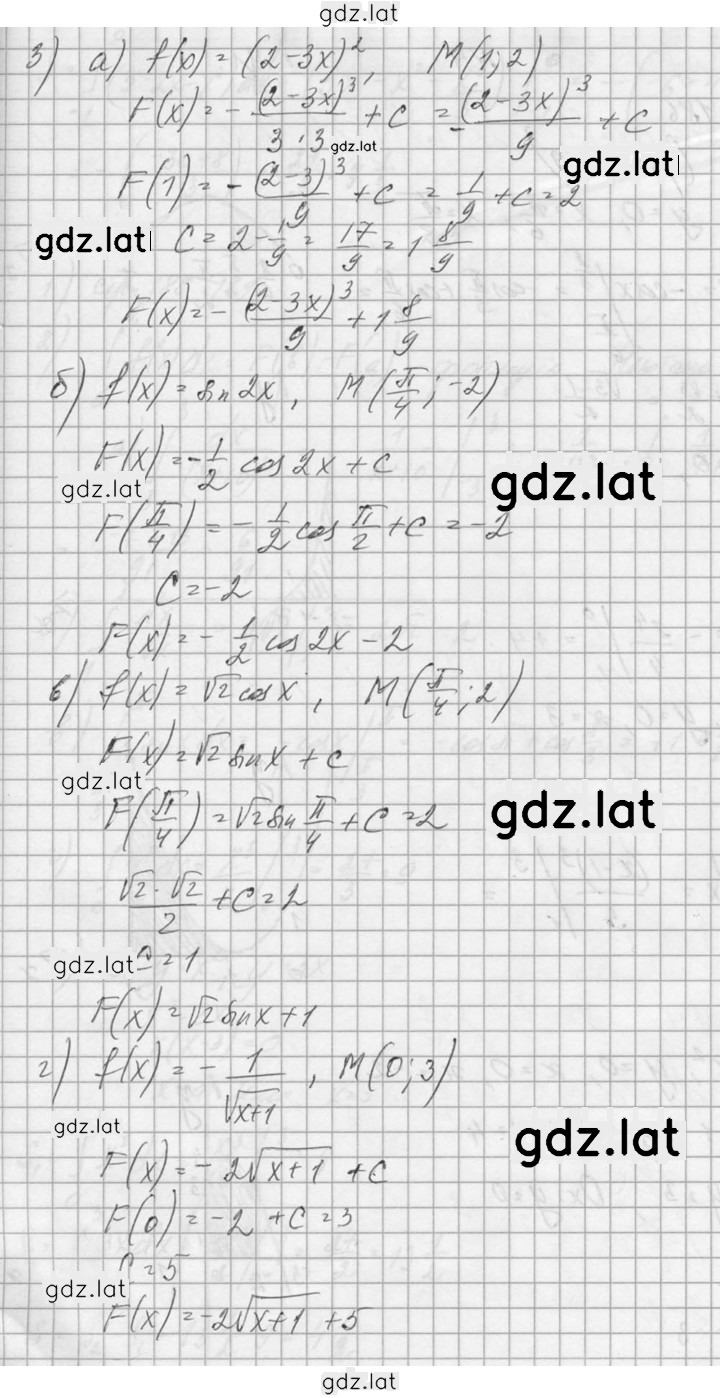 gdz.lat
3) а) f(x) = (2-3x)², M(1; 2)
F(x) = - (2-3x)³/(3·3) + C = - (2-3x)³/9 + C
gdz.lat
gdz.lat
F(1) = - (2-3)³/9 + C = 1/9 + C = 2
gdz.lat C = 2 - 1/9 = 17/9 = 1 8/9
F(x) = - (2-3x)³/9 + 1 8/9
б) f(x) = sin 2x, M(π/4; -2)
F(x) = - 1/2 cos 2x + C
gdz.lat gdz.lat
F(π/4) = - 1/2 cos π/2 + C = -2
C = -2
F(x) = - 1/2 cos 2x - 2
в) f(x) = √2 cos x, M(π/4; 2)
F(x) = √2 sin x + C
gdz.lat
F(π/4) = √2 sin π/4 + C = 2 gdz.lat
√2·√2/2 + C = 2
gdz.lat C = 1
F(x) = √2 sin x + 1
г) f(x) = - 1/√(x+1), M(0; 3)
gdz.lat gdz.lat
F(x) = - 2√(x+1) + C
F(0) = -2 + C = 3
C = 5
gdz.lat
F(x) = -2√(x+1) + 5
gdz.lat